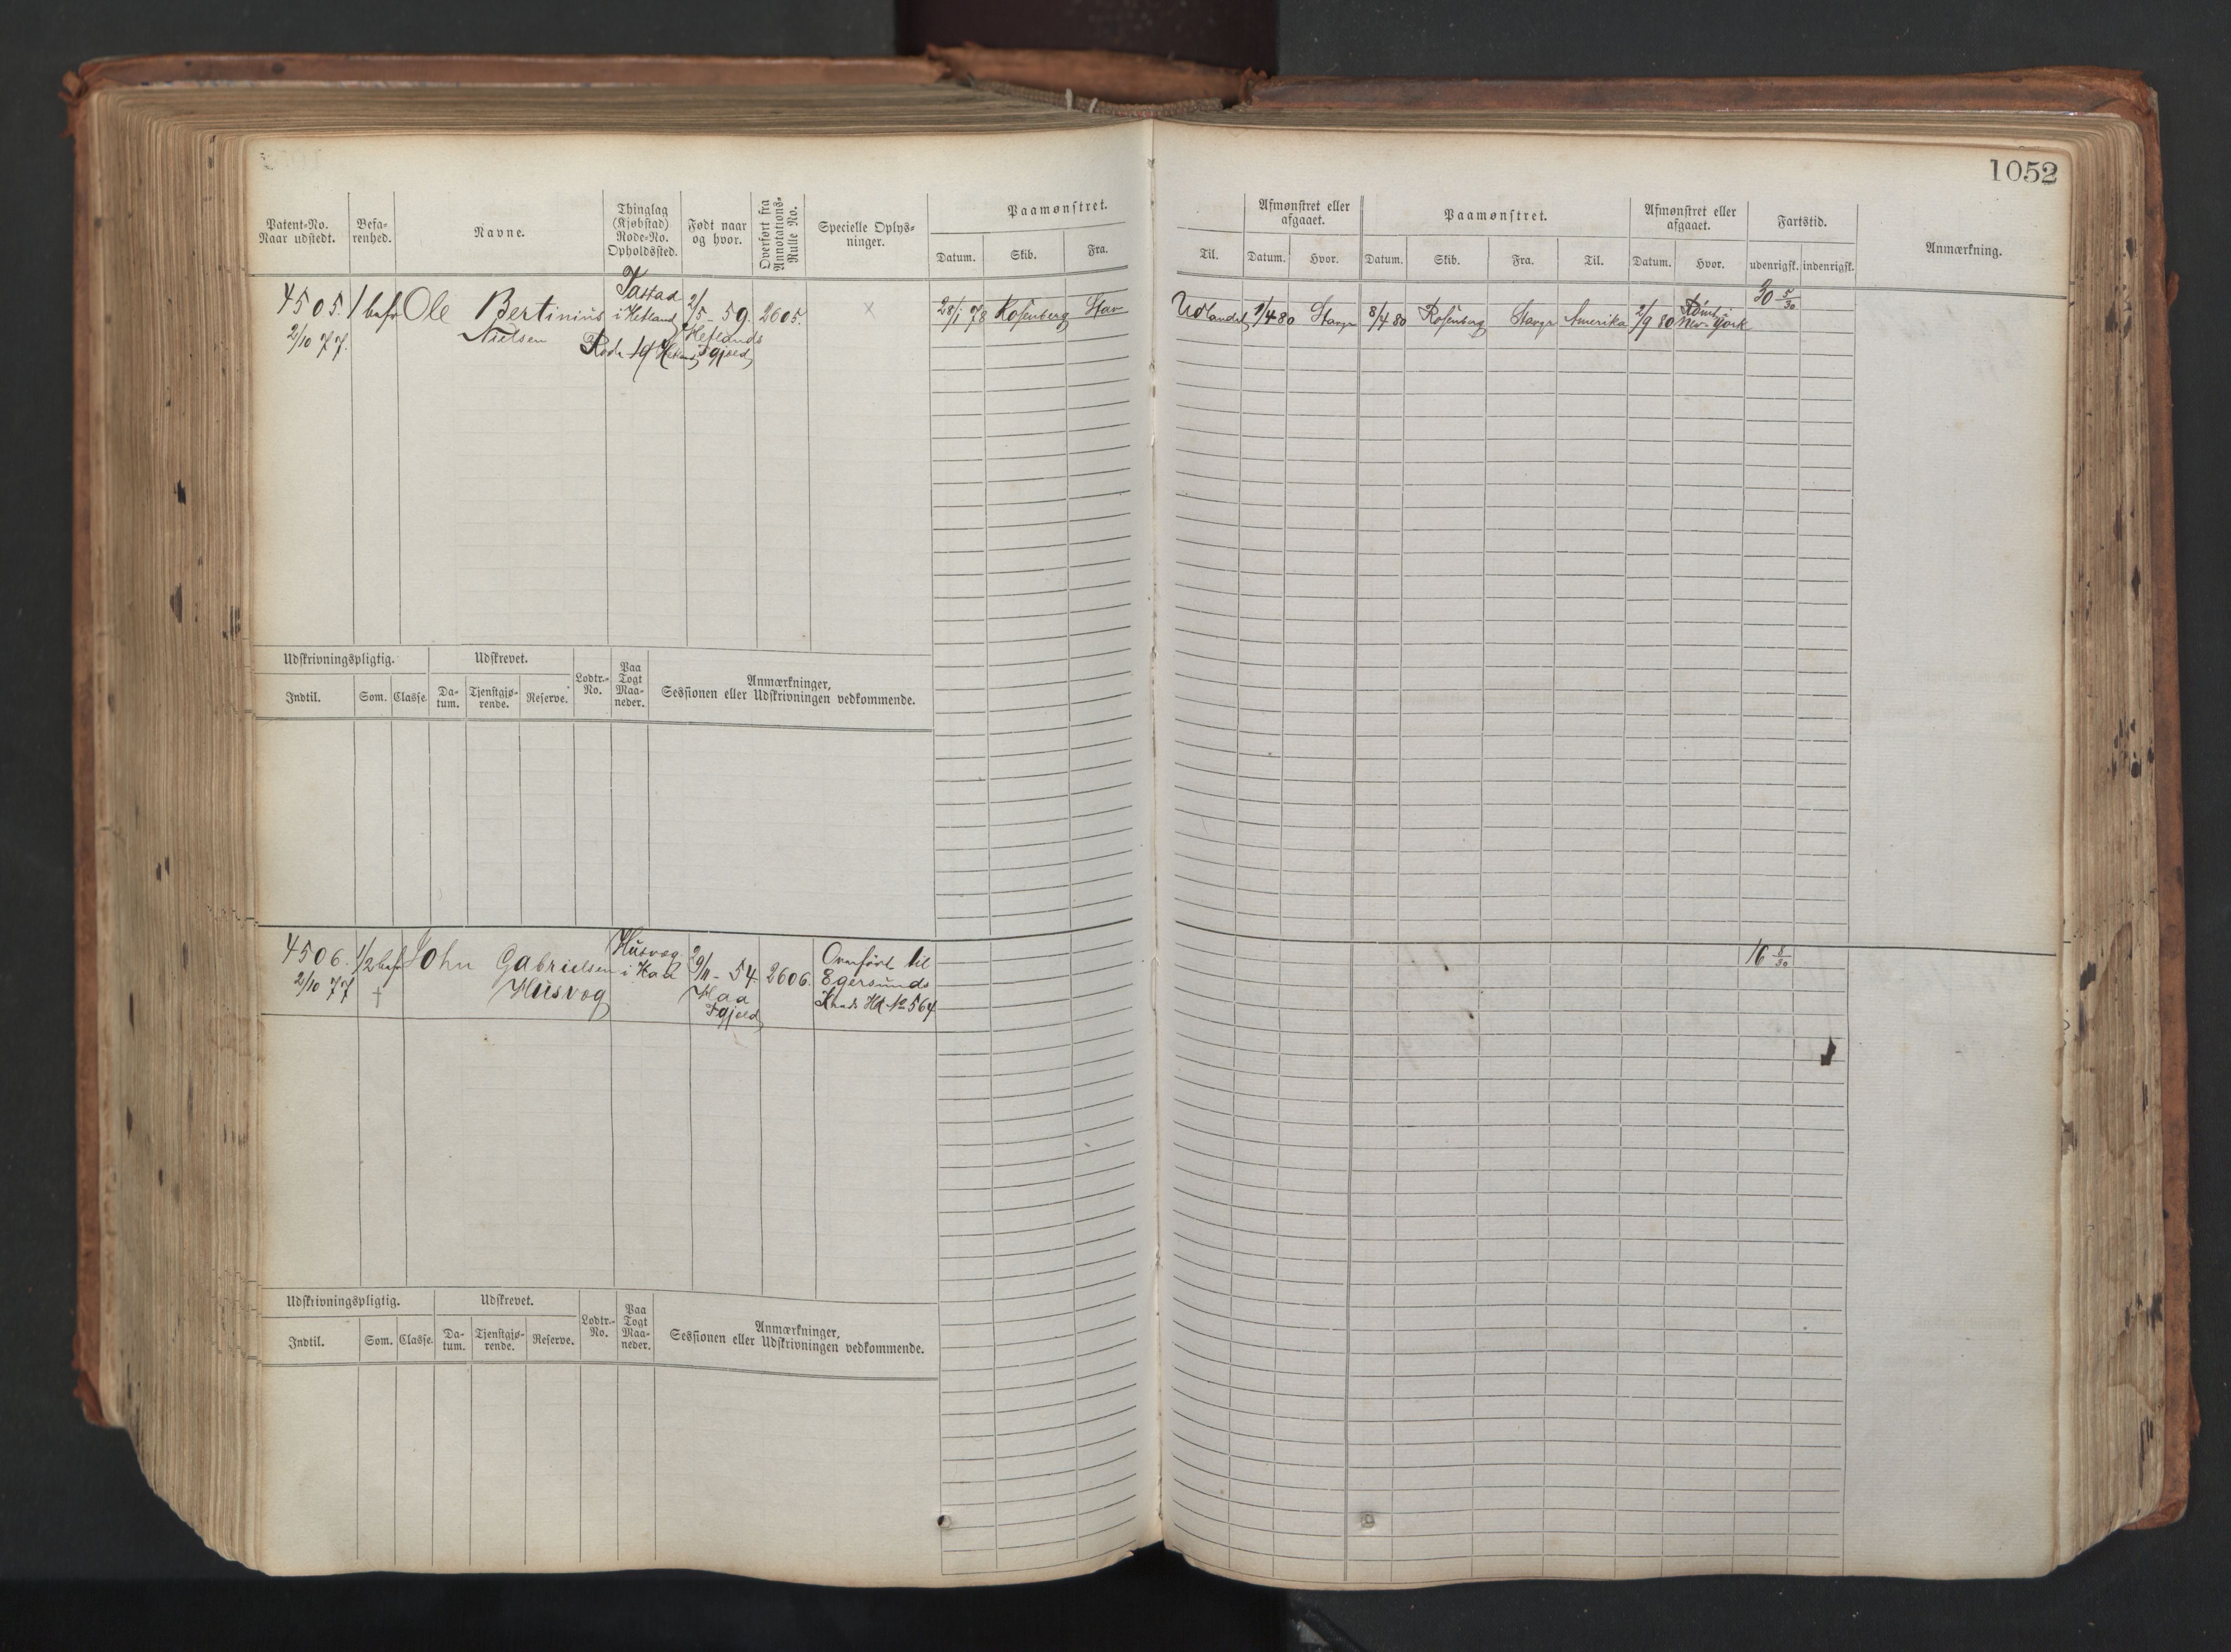 1052
Patent-No.
Naar udstedt.
Befa-
renhed.
Navne.
Thinglag
(Kjøbstad)
Rode-No.
Opholdssted.
Født naar
og hvor.
Overført fra
Annotations-
Rulle No.
Specielle Oplys-
ninger.
Paamønstret.
Datum.
Skib.
Fra.
Til.
Afmønstret eller
afgaaet.
Datum.
Hvor.
Paamønstret.
Datum.
Skib.
Fra.
Til.
Afmønstret eller
afgaaet.
Datum.
Hvor.
Fartstid.
udenrigsk.
indenrigsk.
Anmærkning.
4505.
2/10 77.
1 bef
Ole Bertinius
Nielsen
Tastad
i Hetland
Rode 19 Hetland
2/5 - 59.
Hetlands
Pgjeld
2605.
×
28/1 78
Rosenberg
Stav
Udlandet
1/4 80
Stavgr
8/4 80
Rosenberg
Stavgr
Amerika
2/9 80
Rømt
New-York
30 5/30
Udskrivningspligtig.
Udskrevet.
Lodtr.-
No.
Paa
Togt
Maa-
neder.
Anmærkninger,
Sessionen eller Udskrivningen vedkommende.
Indtil.
Som.
Classe.
Da-
tum.
Tjenstgjø-
rende.
Reserve.
4506.
2/10 77
1/2 bef
†
John Gabrielsen
Husvog
Husvog
i Haa
29/11 - 54.
Haa
Pgjeld
2606.
Overført til
Egersunds
Krads Hd No 564
16 8/30
Udskrivningspligtig.
Udskrevet.
Lodtr.-
No.
Paa
Togt
Maa-
neder.
Anmærkninger,
Sessionen eller Udskrivningen vedkommende.
Indtil.
Som.
Classe.
Da-
tum.
Tjenstgjø-
rende.
Reserve.